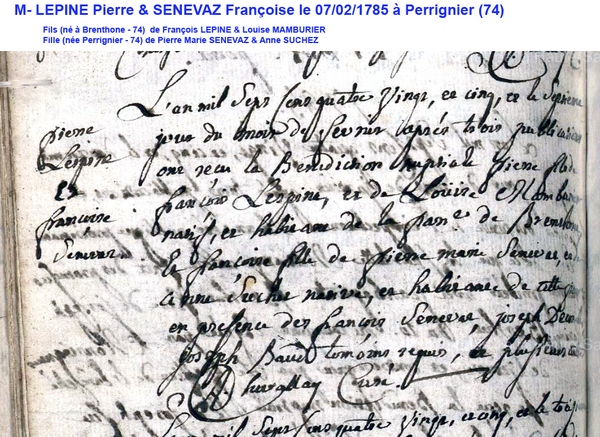 M- LEPINE Pierre & SENEVAZ Françoise le 07/02/1785 à Perrignier (74)
Fils (né à Brenthone - 74) de François LEPINE & Louise MAMBURIER
Fille (née Perrignier - 74) de Pierre Marie SENEVAZ & Anne SUCHEZ
L'an mil Sept Cens quatre Vingt, et cinq, et le septieme
jour du mois de fevrier après trois publications
ont recu la Benediction nuptiale pierre fils de
françois Lespine, et de Louise Mambu
natif, et habitant de la parse de Brenthone
Et francoise fille de pierre marie Senevat et
anne Suchet native, et habitante de
en presence des françois Senevat joseph
Joseph temoins requis, et plusieurs
Curé
pierre
Lespine
et
francoise
Senevat
L'an mil Sept Cens quatre Vingt, et cinq, et le trois